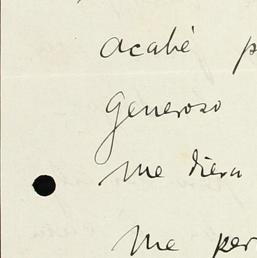 acabé p
generoso
me diera
me per